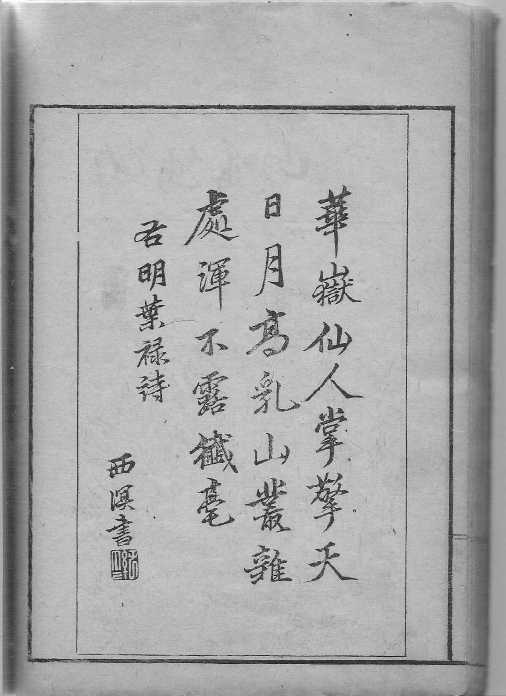 華嶽仙人掌擎天
日月高乳山叢雜
處渾不露纖毫
右明葉禄詩
西溟書